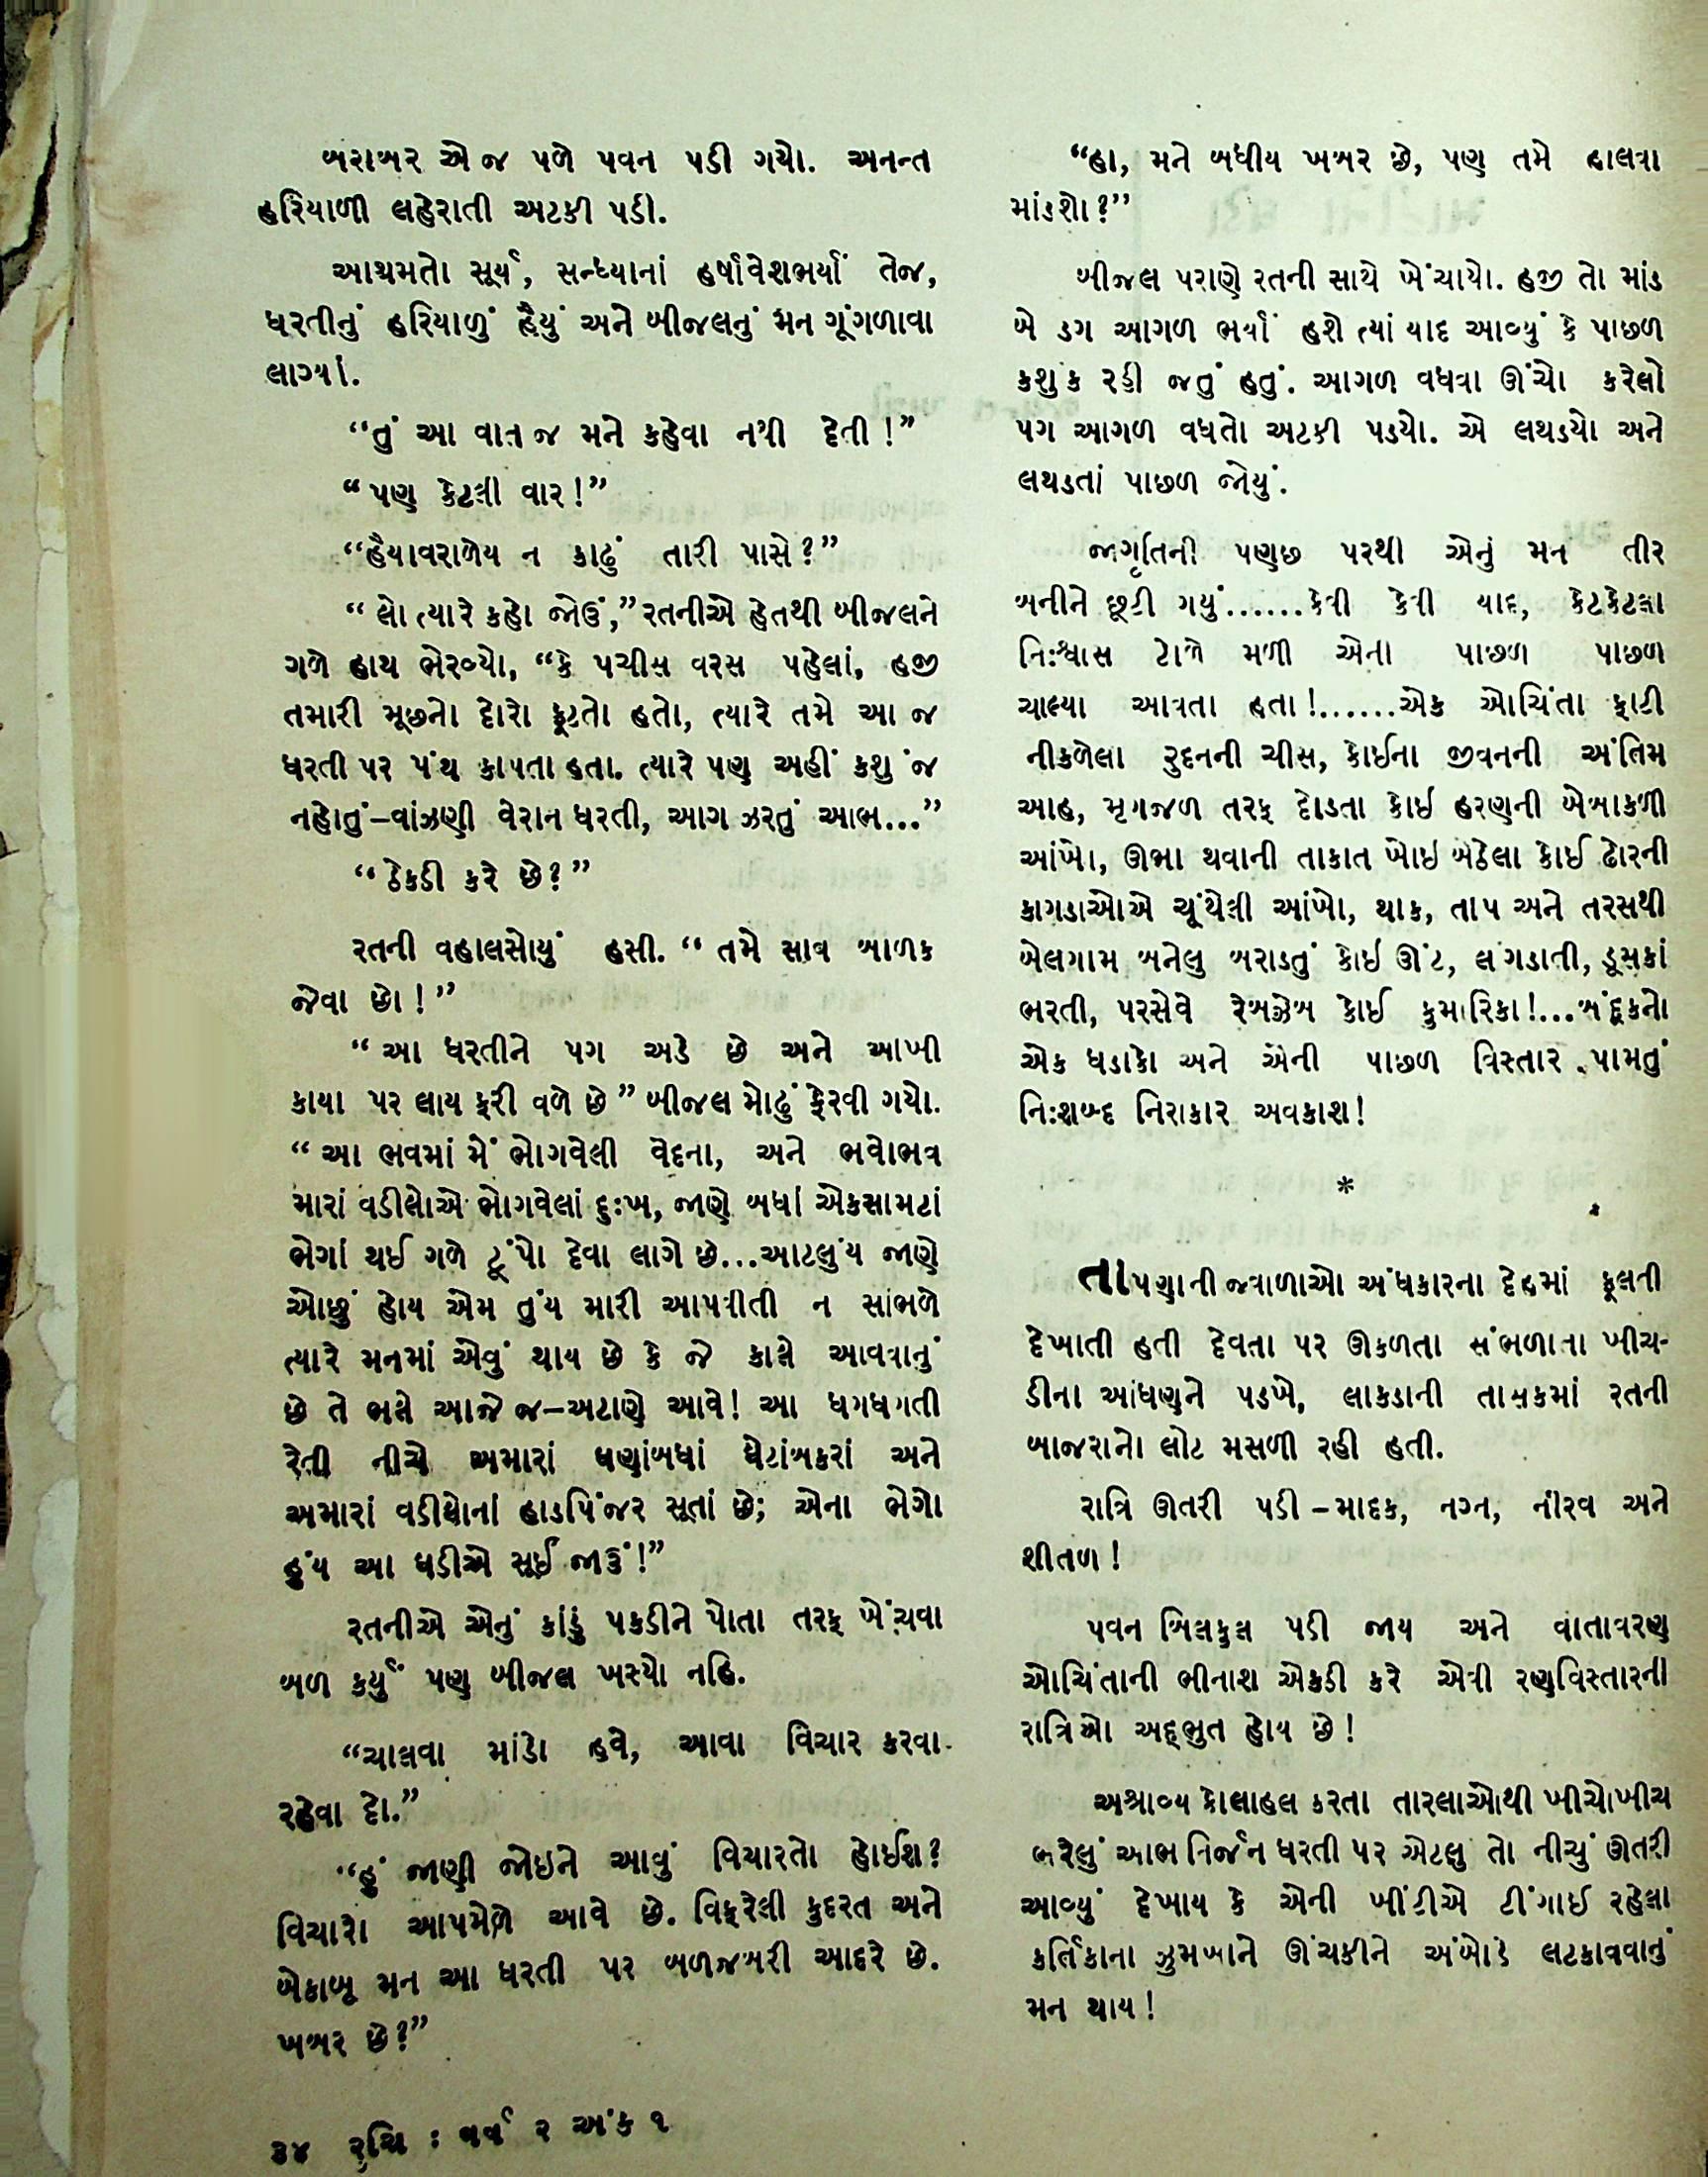 બરાબર એ જ પળે પવન પડી ગયો. અનન્ત
હરિયાળી લહેરાતી અટકી પડી.
આથમતો સૂર્ય, સન્ધ્યાનાં હર્ષાવેશભર્યાં તેજ,
ધરતીનું હરિયાળું હૈયું અને બીજલનું મન ગૂંગળાવા
લાગ્યાં.
“તું આ વાત જ મને કહેવા નથી દેતી !”
“પણ કેટલી વાર !”
“હૈયાવરાળેય ન કાઢું તારી પાસે ?”
“લો ત્યારે કહો જોઉં,” રતનીએ હેતથી બીજલને
ગળે હાથ ભેરવ્યો, “કે પચીસ વરસ પહેલાં, હજી
તમારી મૂછનો દોરો ફૂટતો હતો, ત્યારે તમે આ જ
ધરતી પર પંથ કાપતા હતા. ત્યારે પણ અહીં કશું જ
નહોતું–વાંઝણી વેરાન ધરતી, આગ ઝરતું આભ...”
“ઠેકડી કરે છે ?”
રતની વહાલસોયું હસી. “તમે સાવ બાળક
જેવા છો !”
“આ ધરતીને પગ અડે છે અને આખી
કાયા પર લાય ફરી વળે છે” બીજલ મોઢું ફેરવી ગયો.
“આ ભવમાં મેં ભોગવેલી વેદના, અને ભવોભવ
મારાં વડીલોએ ભોગવેલાં દુઃખ, જાણે બધાં એકસામટાં
ભેગાં થઈ ગળે ટૂંપો દેવા લાગે છે...આટલુંય જાણે
ઓછું હોય એમ તુંય મારી આપવીતી ન સાંભળે
ત્યારે મનમાં એવું થાય છે કે જે કાલે આવવાનું
છે તે ભલે આજે જ–અટાણે આવે! આ ધગધગતી
રેતી નીચે અમારાં ઘણાંબધાં ઘેટાંબકરાં અને
અમારાં વડીલોનાં હાડપિંજર સૂતાં છે; એના ભેગો
હુંય આ ઘડીએ સૂઈ જાઉં !”
રતનીએ એનું કાંડું પકડીને પોતા તરફ ખેંચવા
બળ કર્યું પણ બીજલ ખસ્યો નહિ.
“ચાલવા માંડો હવે, આવા વિચાર કરવા
રહેવા દો.”
“હું જાણી જોઇને આવું વિચારતો હોઈશ ?
વિચારો આપમેળે આવે છે. વિફરેલી કુદરત અને
બેકાબૂ મન આ ધરતી પર બળજબરી આદરે છે.
ખબર છે ?”
૩૪ રુચિ : વર્ષ ૨ અંક ૧
“હા, મને બધીય ખબર છે, પણ તમે હાલવા
માંડશો ?”
બીજલ પરાણે રતની સાથે ખેંચાયો. હજી તો માંડ
બે ડગ આગળ ભર્યાં હશે ત્યાં યાદ આવ્યું કે પાછળ
કશુંક રડી જતું હતું. આગળ વધવા ઊંચો કરેલો
પગ આગળ વધતો અટકી પડયો. એ લથડયો અને
લથડતાં પાછળ જોયું.
જાગૃતિની પણછ પરથી એનું મન તીર
બનીને છૂટી ગયું......કેવી કેવી યાદ, કેટકેટલા
નિઃશ્વાસ ટોળે મળી એના પાછળ પાછળ
ચાલ્યા આવતા હતા !......એક ઓચિંતા ફાટી
નીકળેલા રુદનની ચીસ, કોઈના જીવનની અંતિમ
આહ, મૃગજળ તરફ દોડતા કોઇ હરણની બેબાકળી
આંખો, ઊભા થવાની તાકાત ખોઇ બેઠેલા કોઈ ઢોરની
કાગડાઓએ ચૂંથેલી આંખો, થાક, તાપ અને તરસથી
બેલગામ બનેલુ બરાડતું કોઇ ઊંટ, લંગડાતી, ડૂસકાં
ભરતી, પરસેવે રેબઝેબ કોઈ કુમારિકા !...બંદૂકનો
એક ધડાકો અને એની પાછળ વિસ્તાર પામતું
નિઃશબ્દ નિરાકાર અવકાશ !
*
તાપણાની જવાળાઓ અંધકારના દેહમાં ફૂલતી
દેખાતી હતી દેવતા પર ઊકળતા સંભળાતા ખીચ-
ડીના આંધણને પડખે, લાકડાની તાસકમાં રતની
બાજરાનો લોટ મસળી રહી હતી.
રાત્રિ ઊતરી પડી – માદક, નગ્ન, નીરવ અને
શીતળ !
પવન બિલકુલ પડી જાય અને વાતાવરણ
ઓચિંતાની ભીનાશ એકઠી કરે એવી રણવિસ્તારની
રાત્રિઓ અદ્દભુત હોય છે !
અશ્રાવ્ય કોલાહલ કરતા તારલાઓથી ખીચોખીચ
ભરેલું આભ નિર્જન ધરતી પર એટલુ તો નીચું ઊતરી
આવ્યું દેખાય કે એની ખીંટીએ ટીંગાઈ રહેલા
કર્તિકાના ઝુમખાને ઊંચકીને અંબોડે લટકાવવાનું
મન થાય !